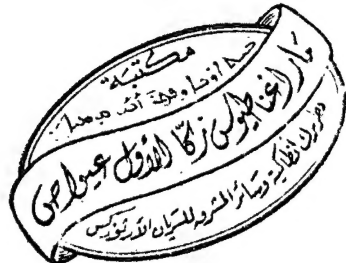 مكتبة
مار اغناطيوس زكا الأول عيواص
بطريرك أنطاكية وسائر المشرق للسريان الأرثوذكس